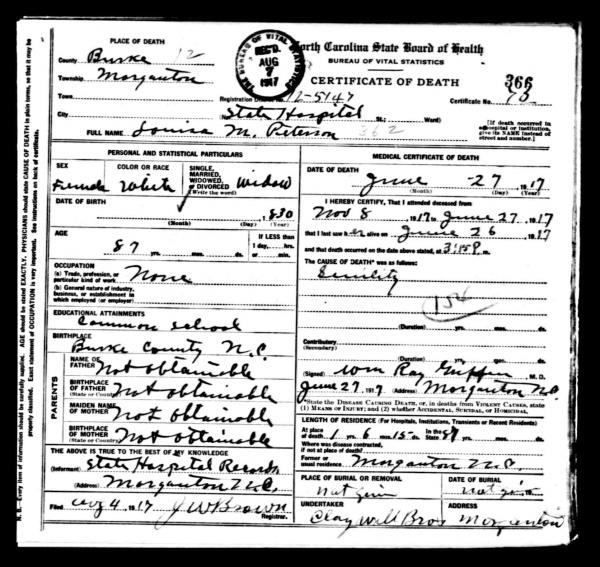 PLACE OF DEATH
County Burke 12
Township Morganton
Town
City
North Carolina State Board of Health
BUREAU OF VITAL STATISTICS
CERTIFICATE OF DEATH
BUREAU OF VITAL STATISTICS
REC'D.
AUG
7
1917
366
Registration District No. 12-5147 Certificate No. 73
State Hospital St.; Ward)
[If death occurred in
a hospital or institution,
give its NAME instead of
street and number.]
FULL NAME Louisa M. Peterson 362
PERSONAL AND STATISTICAL PARTICULARS
SEX
Female
COLOR OR RACE
White
SINGLE,
MARRIED,
WIDOWED,
or DIVORCED
(Write the word)
Widow
DATE OF BIRTH
1830
(Month) (Day) (Year)
AGE
87 yrs. mos. ds.
If LESS than
1 day, hrs.
or min.
OCCUPATION
(a) Trade, profession, or
particular kind of work None
(b) General nature of industry,
business, or establishment in
which employed (or employer)
EDUCATIONAL ATTAINMENTS
Common School
BIRTHPLACE
Burke County N.C.
PARENTS
NAME OF
FATHER Not obtainable
BIRTHPLACE
OF FATHER
(State or Country) Not obtainable
MAIDEN NAME
OF MOTHER Not obtainable
BIRTHPLACE
OF MOTHER
(State or Country) Not obtainable
THE ABOVE IS TRUE TO THE BEST OF MY KNOWLEDGE
(Informant) State Hospital Records
(Address) Morganton N.C.
Filed Aug 4 1917 J W Brown
Registrar.
MEDICAL CERTIFICATE OF DEATH
DATE OF DEATH
June 27 1917
(Month) (Day) (Year)
I HEREBY CERTIFY, That I attended deceased from
Nov 8 1917 to June 27 1917
that I last saw her alive on June 26 1917
and that death occurred on the date above stated, at 3:15 P m.
The CAUSE OF DEATH* was as follows:
Senility
154
(Duration) yrs. mos. ds.
Contributory
(Secondary)
(Duration) yrs. mos. ds.
(Signed) Wm Ray Griffin M. D.
June 27 1917 (Address) Morganton N.C.
*State the DISEASE CAUSING DEATH, or, in deaths from VIOLENT CAUSES, state
(1) MEANS OF INJURY; and (2) whether ACCIDENTAL, SUICIDAL, or HOMICIDAL.
LENGTH OF RESIDENCE (For Hospitals, Institutions, Transients or Recent Residents)
At place
of death 1 yrs. 6 mos. 15 ds. In the State 87
Where was disease contracted,
if not at place of death?
Former or
usual residence Morganton N.C.
PLACE OF BURIAL OR REMOVAL
not given
DATE OF BURIAL
not given
UNDERTAKER
Claywell Bros
ADDRESS
Morganton
N. B.—Every item of information should be carefully supplied. AGE should be stated EXACTLY. PHYSICIANS should state CAUSE OF DEATH in plain terms, so that it may be
properly classified. Exact statement of OCCUPATION is very important. See instructions on back of certificate.